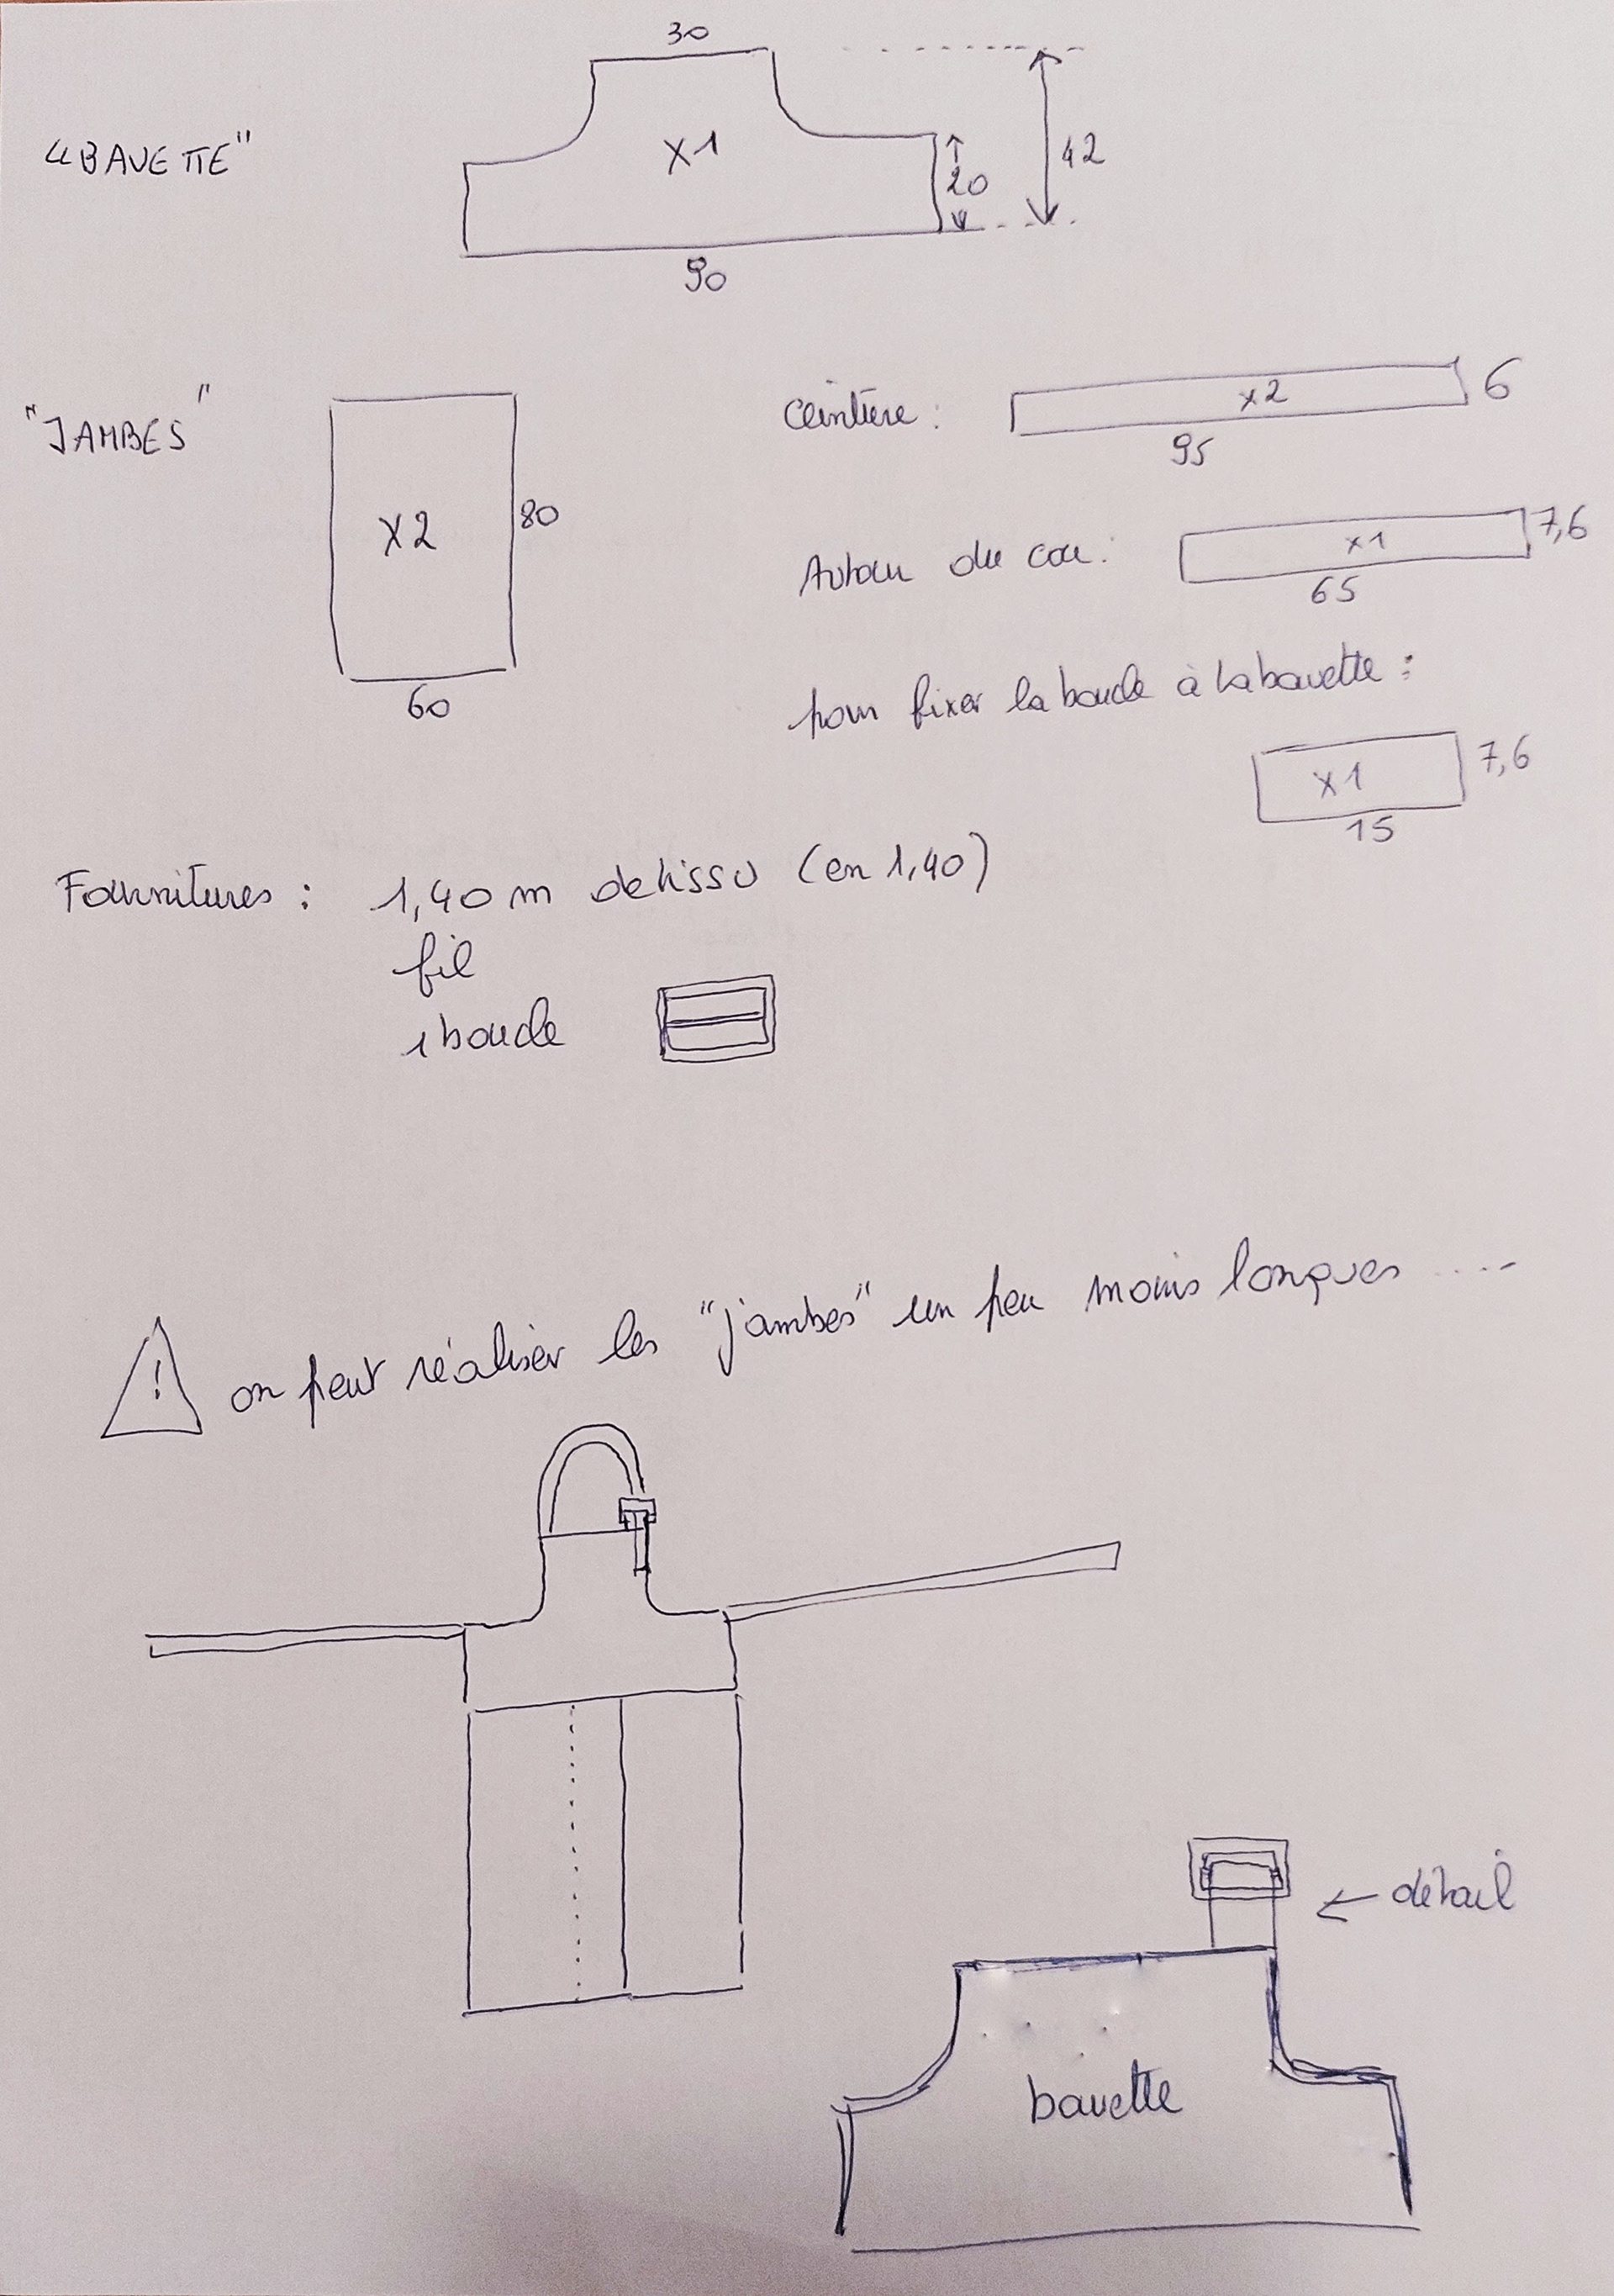 30
"BAVETTE"
X1
42
20
90
"JAMBES"
X2
80
60
Ceinture :
x2
6
95
Autour du cou :
x1
7,6
65
pour fixer la boucle à la bavette :
x1
7,6
15
Fournitures : 1,40 m de tissu (en 1,40)
fil
1 boucle
! on peut réaliser les "jambes" un peu moins longues ....
← détail
bavette